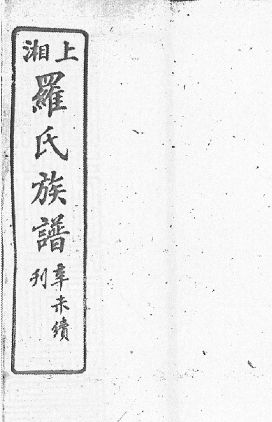 上湘
羅氏族譜
辛未續
刊